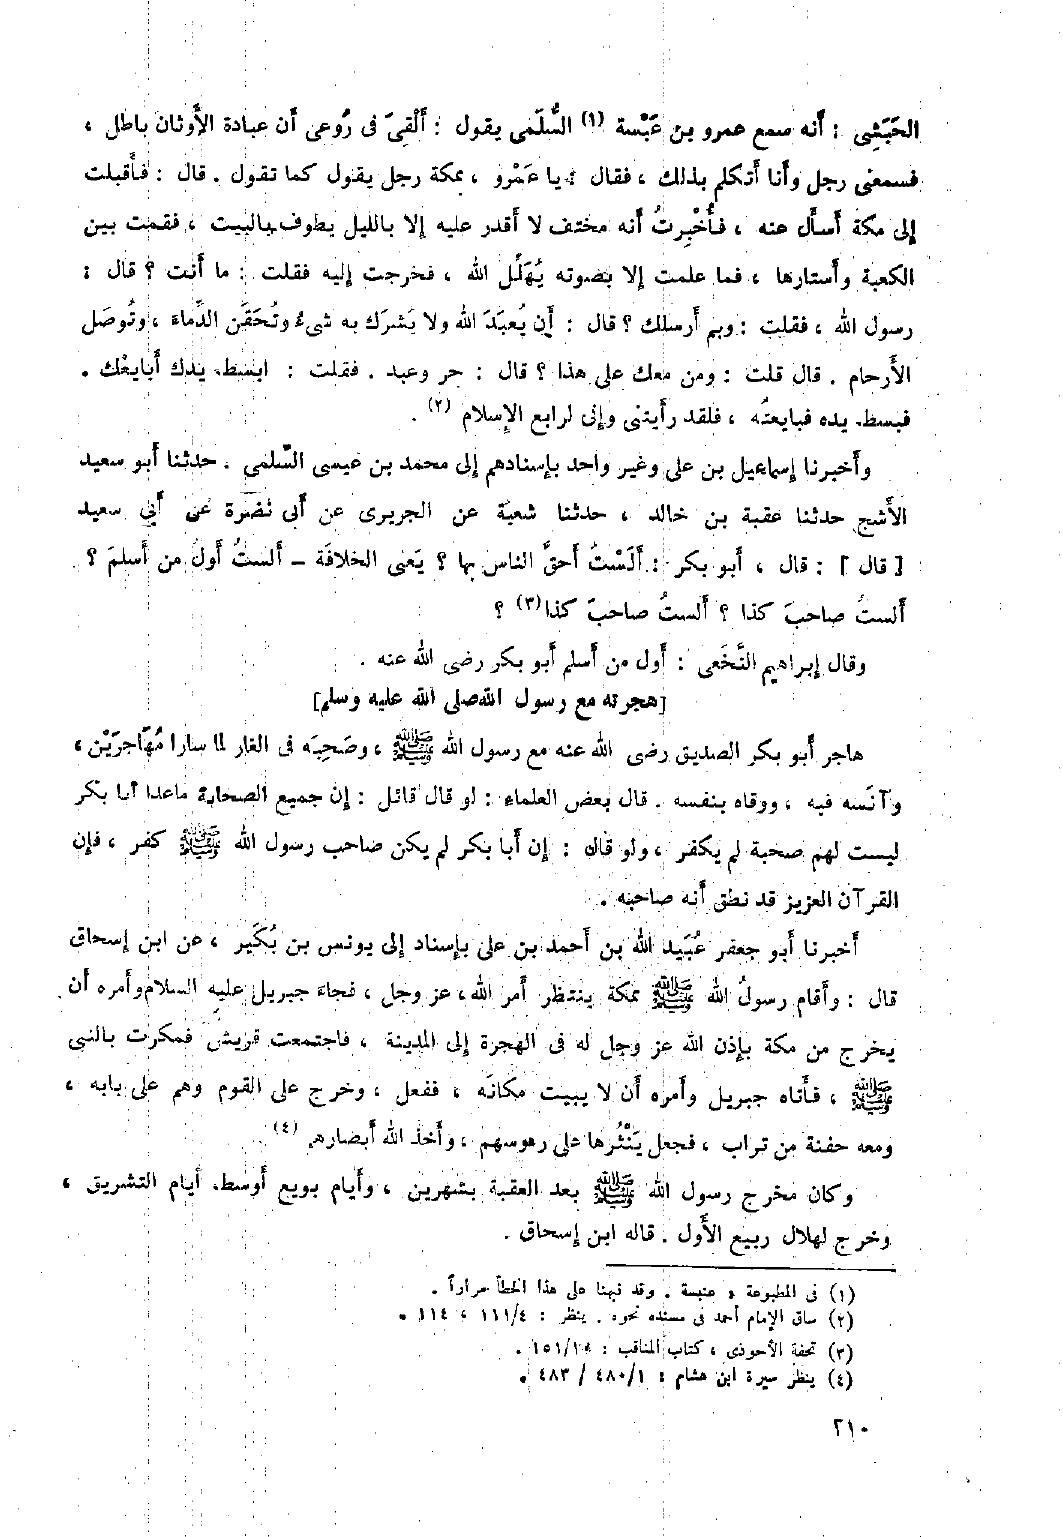 الحَبَشِى : أَنه سمع عمرو بن عَبْسة (١) السُّلَمى يقول : أُلْقِىَ فى رُوعى أَن عبادة الأَوثان باطل ،
فسمعنى رجل وأَنا أَتكلم بذلك ، فقال : يا عَمْرو ، بمكة رجل يقول كما تقول . قال : فأَقبلت
إِلى مكة أَسأَل عنه ، فأُخْبِرتُ أَنه مختف لا أَقدر عليه إلا بالليل يطوف بالبيت ، فقمت بين
الكعبة وأَستارها ، فما علمت إِلا بصوته يُهَلِّل الله ، فخرجت إليه فقلت : ما أَنت ؟ قال :
رسول الله ، فقلت : وبم أَرسلك ؟ قال : أَن يُعبَدَ الله ولا يَشرَك به شىءٌ وتُحقَن الدِّماء ، وتُوصَل
الأَرحام . قال قلت : ومن معك على هذا ؟ قال : حر وعبد . فقلت : ابسط يدك أُبايعْك .
فبسط يده فبايعتُه ، فلقد رأَيتنى وإِنى لرابع الإِسلام (٢) .
وأَخبرنا إِسماعيل بن على وغير واحد بإِسنادهم إِلى محمد بن عيسى السّلمى . حدثنا أَبو سعيد
الأَشج حدثنا عقبة بن خالد ، حدثنا شعبة عن الجريرى عن أَبى نضْرة عن أَبي سعيد
[ قال ] : قال ، أَبو بكر : أَلَسْتُ أَحقَّ الناس بها ؟ يَعنى الخلافَة – أَلستُ أَولَ من أَسلمَ ؟
أَلستُ صاحبَ كذا ؟ أَلستُ صاحبَ كذا (٣) ؟
وقال إِبراهيم النَّخَعى : أَول من أَسلم أَبو بكر رضى الله عنه .
[هجرته مع رسول الله صلى الله عليه وسلم]
هاجر أَبو بكر الصديق رضى الله عنه مع رسول الله ﷺ ، وصَحِبَه فى الغار لما سارا مُهَاجرَيْن ،
وآنَسه فيه ، ووقاه بنفسه . قال بعض العلماء : لو قال قائل : إِن جميع الصحابة ماعدا أَبا بكر
ليست لهم صحبة لم يكفر ، ولو قال : إِن أَبا بكر لم يكن صاحب رسول الله ﷺ كفر ، فإِن
القرآن العزيز قد نطق أَنه صاحبه .
أَخبرنا أَبو جعفر عُبَيد الله بن أَحمد بن على بإِسناد إِلى يونس بن بُكَير ، عن ابن إِسحاق
قال : وأَقام رسولُ الله ﷺ بمكة ينتظر أَمر الله، عز وجل ، فجاءَ جبريل عليه السلام وأَمره أَن
يخرج من مكة بإِذن الله عز وجل له فى الهجرة إِلى المدينة ، فاجتمعت قريش فمكرت بالنبى
ﷺ ، فأَتاه جبريل وأَمره أَن لا يبيت مكانَه ، ففعل ، وخرج على القوم وهم على بابه ،
ومعه حفنة من تراب ، فجعل يَنْثُرها على رءوسهم ، وأَخذ الله أَبصارهم (٤) .
وكان مخرج رسول الله ﷺ بعد العقبة بشهرين ، وأَيام بويع أَوسط أَيام التشريق ،
وخرج لهلال ربيع الأَول . قاله ابن إِسحاق .
(١) فى المطبوعة : عنبسة . وقد نبهنا على هذا الخطأ مراراً .
(٢) ساق الإمام أحمد فى مسنده نحوه . ينظر : ١١١/٤ ، ١١٤ .
(٣) تحفة الأحوذى ، كتاب المناقب : ١٥١/١٠ .
(٤) ينظر سيرة ابن هشام : ٤٨٠/١ / ٤٨٣ .
٢١٠